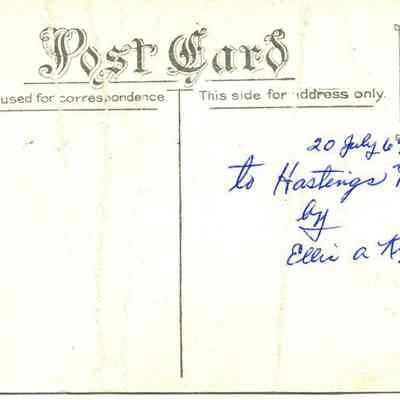 Post Card
used for correspondence.
This side for address only.
20 July 6
to Hastings
by
Ellis a